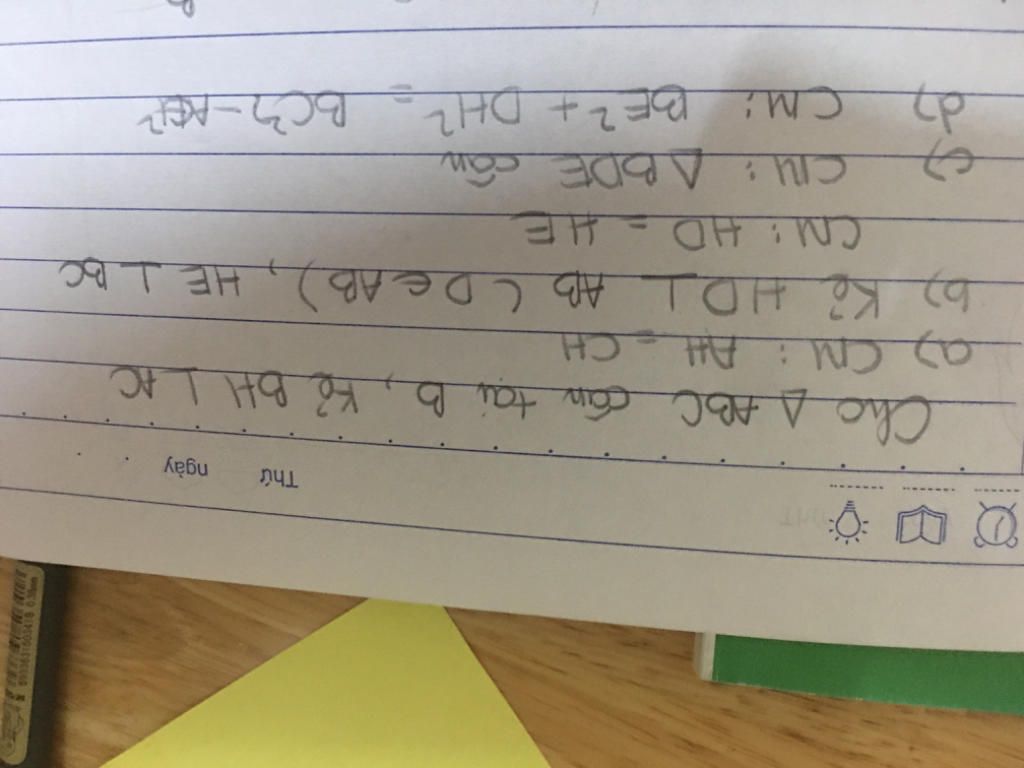 Thứ ngày
Cho Δ ABC cân tại B, Kẻ BH ⊥ AC
a) CM: AH = CH
b) Kẻ HD ⊥ AB (D ∈ AB), HE ⊥ BC
CM: HD = HE
c) CM: Δ BDE cân
d) CM: BE² + DH² = BC² - AH²